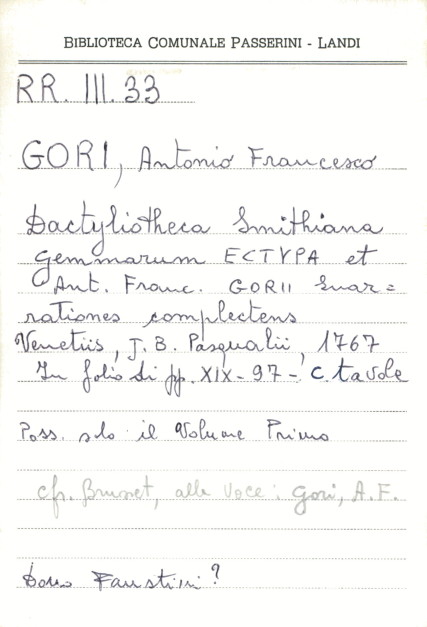 BIBLIOTECA COMUNALE PASSERINI - LANDI
RR. III. 33
GORI, Antonio Francesco
Dactyliotheca Smithiana
gemmarum ECTYPA et
Ant. Franc. GORII Enar=
rationes complectens
Venetiis, J. B. Pasqualii, 1767
In folio di pp. XIX - 97 - C. tavole
Poss. solo il Volume Primo
cfr. Brunet, alla voce: Gori, A.F.
Dono Faustini?